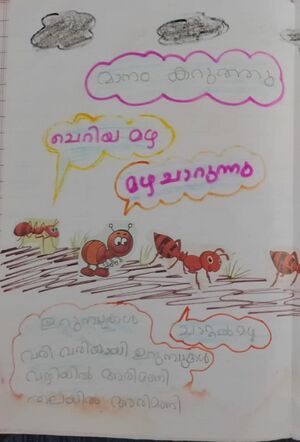 മാനം കറുത്തു
ചെറിയ മഴ
മഴ ചാറുന്നു
ഉറുമ്പുകൾ
ചാറ്റൽ മഴ
വരി വരിയായി ഉറുമ്പുകൾ
വഴിയിൽ അരിമണി
തലയിൽ അരിമണി